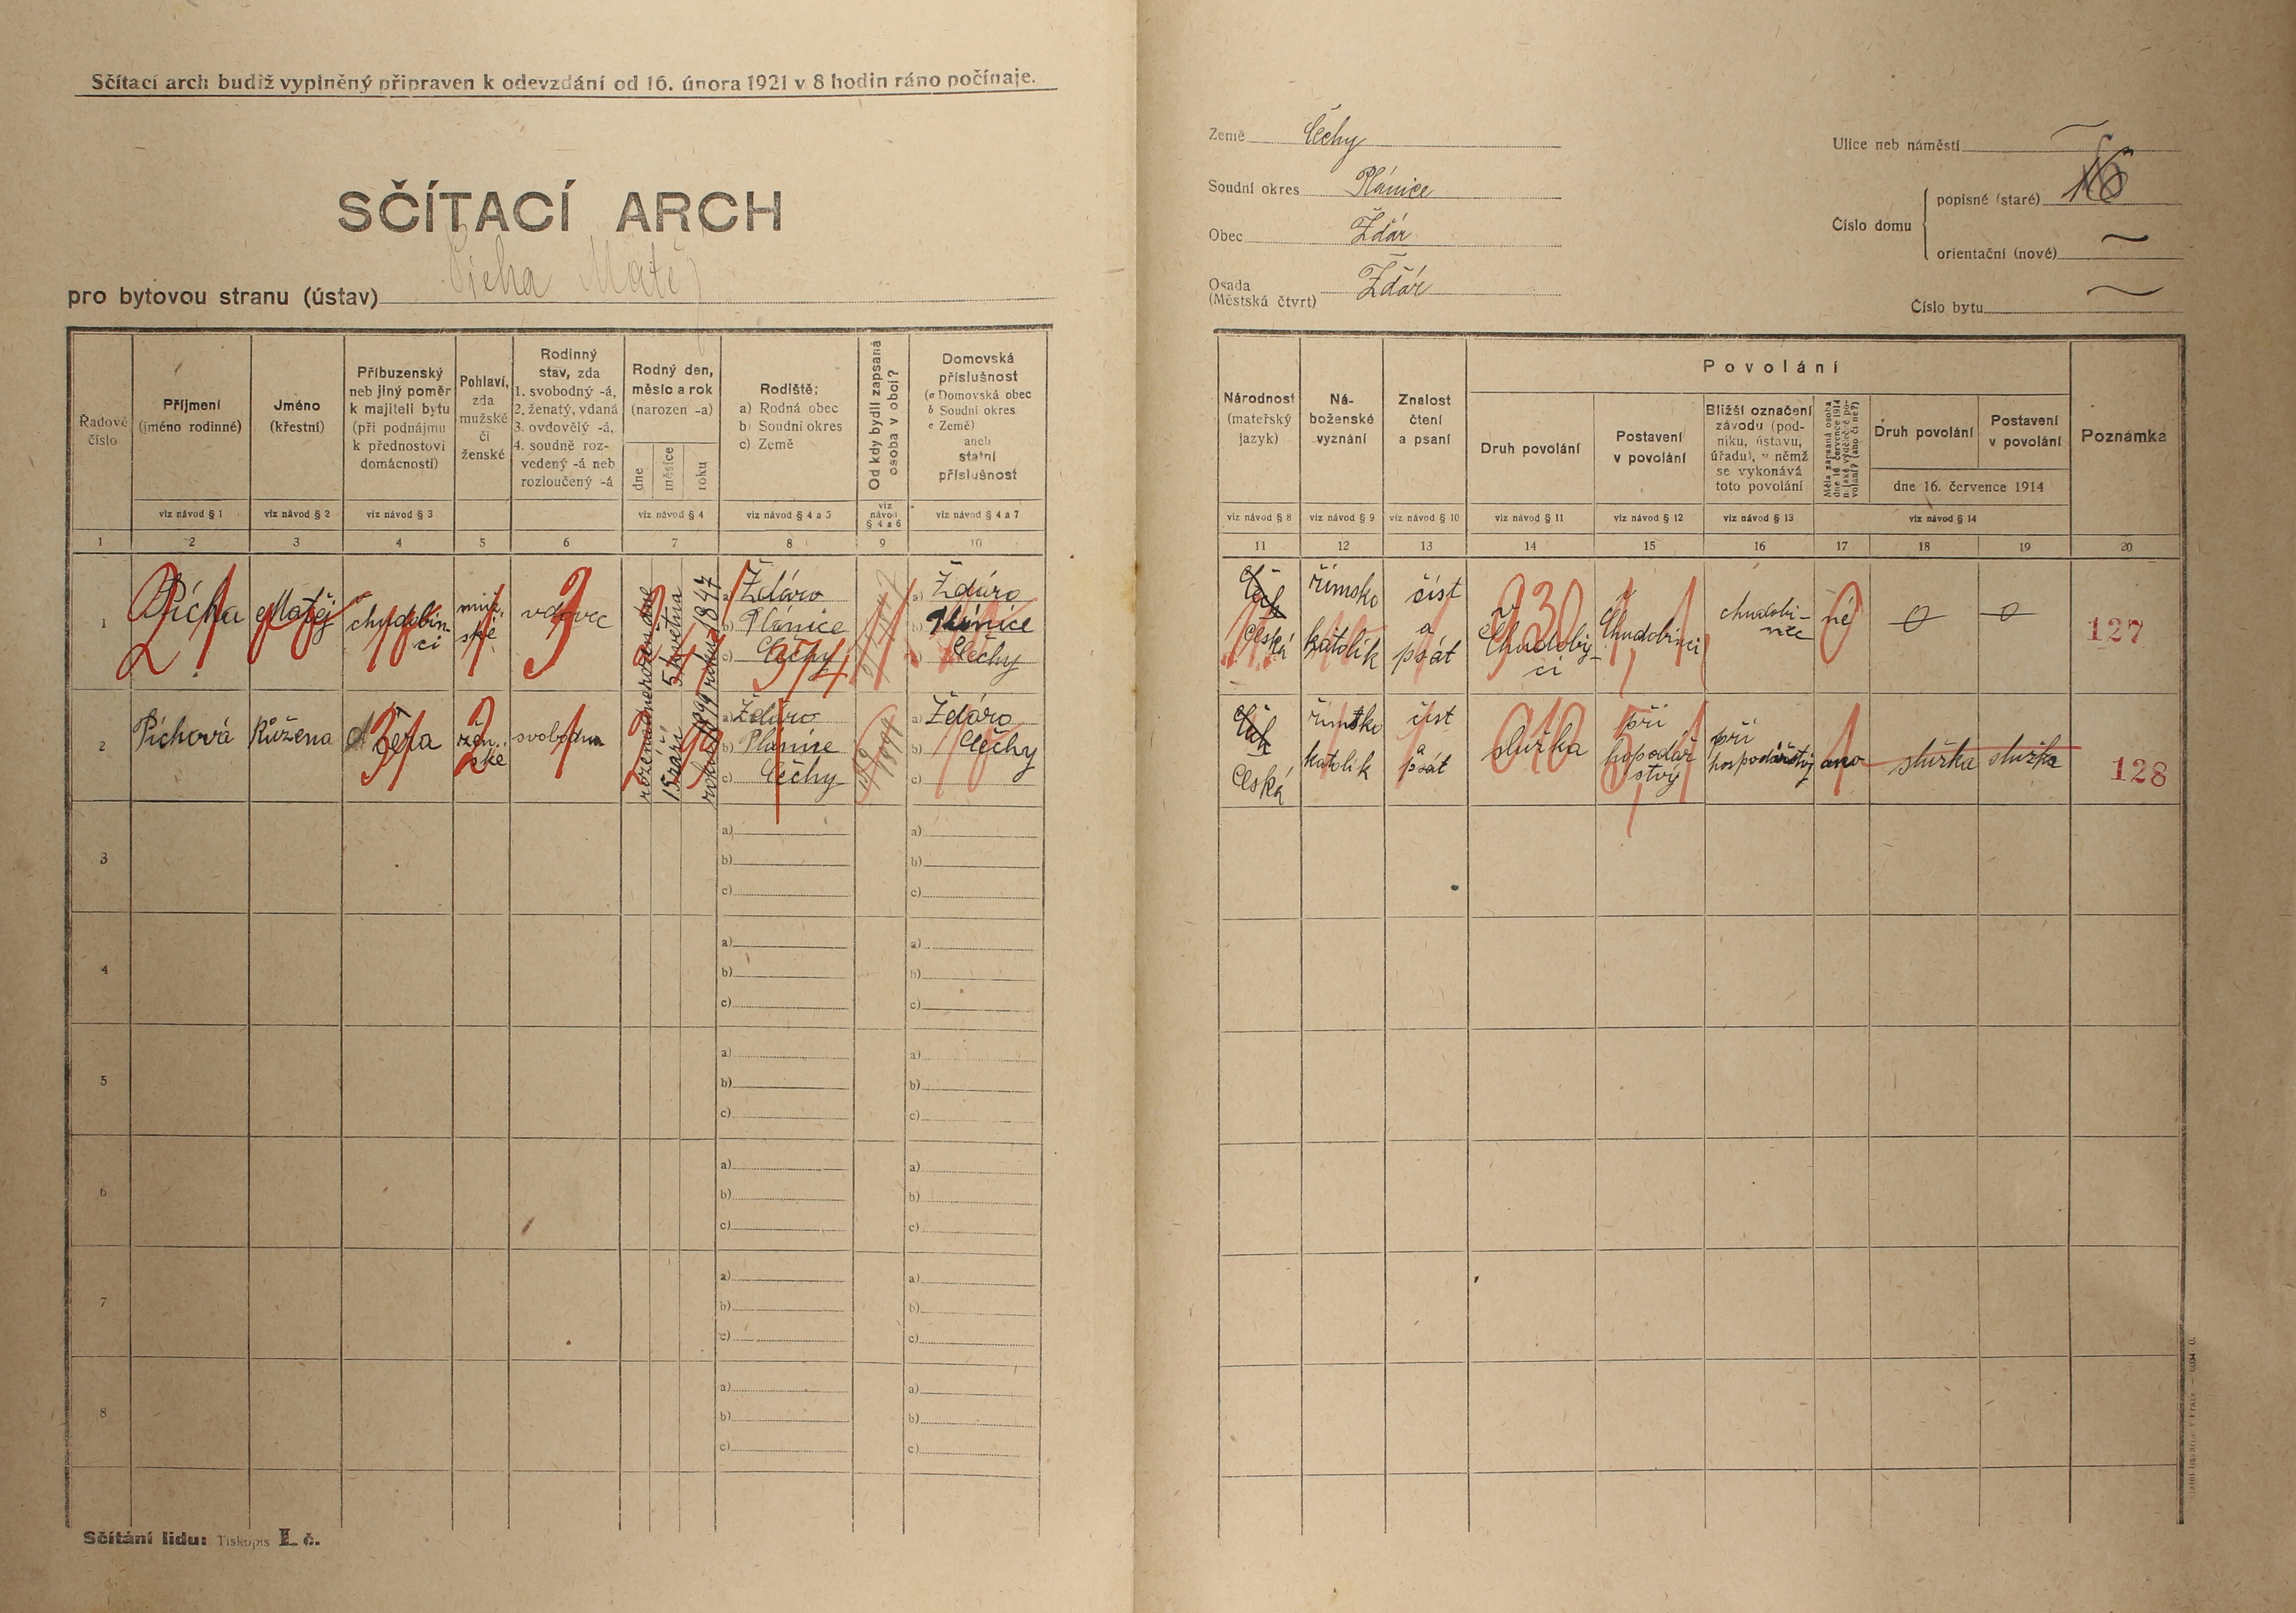 Sčítací arch budiž vyplněný připraven k odevzdání od 16. února 1921 v 8 hodin ráno počínaje.
SČÍTACÍ ARCH
pro bytovou stranu (ústav) Pícha Matěj
Země Čechy
Soudní okres Plánice
Obec Ždár
Osada
(Městská čtvrt) Ždár
Ulice neb náměstí
Číslo domu
popisné (staré) 16
orientační (nové)
Číslo bytu
Řadové
číslo
Příjmení
(jméno rodinné)
Jméno
(křestní)
Příbuzenský
neb jiný poměr
k majiteli bytu
(při podnájmu
k přednostovi
domácnosti)
Pohlaví,
zda
mužské
či
ženské
Rodinný
stav, zda
1. svobodný -á,
2. ženatý, vdaná
3. ovdovělý -á,
4. soudně roz-
vedený -á neb
rozloučený -á
Rodný den,
měsíc a rok
(narozen -a)
dne
měsíce
roku
Rodiště:
a) Rodná obec
b) Soudní okres
c) Země
Od kdy bydlí zapsaná
osoba v obci?
Domovská
příslušnost
(a Domovská obec
b Soudní okres
c Země)
aneb
statní
příslušnost
Národnost
(mateřský
jazyk)
Ná-
boženské
vyznání
Znalost
čtení
a psaní
Povolání
Druh povolání
Postavení
v povolání
Bližší označení
závodu (pod-
niku, ústavu,
úřadu), v němž
se vykonává
toto povolání
Měla zapsaná osoba
dne 16. července 1914
n. jaké výdělečné po-
volání? (ano či ne?)
Druh povolání
Postavení
v povolání
dne 16. července 1914
Poznámka
viz návod § 1
viz návod § 2
viz návod § 3
viz návod § 4
viz návod § 4 a 5
viz
návod
§ 4 a 6
viz návod § 4 a 7
viz návod § 8
viz návod § 9
viz návod § 10
viz návod § 11
viz návod § 12
viz návod § 13
viz návod § 14
1 2 3 4 5 6 7 8 9 10 11 12 13 14 15 16 17 18 19 20
1
Pícha
Matěj
chudobin-
ci
muž.
ské
vdovec
5 května
roku 1847
a) Ždáro
b) Plánice
c) Čechy
a) Ždáro
b) Plánice
c) Čechy
Česká
římsko
katolík
číst
a
psát
v
Chudobi-
ci
Chudobinci
chudobi-
nec
né
0
0
127
2
Píchová
Růžena
dcera
žen.
ské
svobodna
15 září
a) Ždáro
b) Plánice
c) Čechy
a) Ždáro
b) Čechy
c)
Česká
římsko
katolík
číst
a
psát
služka
při
hopodář
ství
při
hospodářství
ano
služka
služka
128
3
a)
b)
c)
a)
b)
c)
4
a)
b)
c)
a)
b)
c)
5
a)
b)
c)
a)
b)
c)
6
a)
b)
c)
a)
b)
c)
7
a)
b)
c)
a)
b)
c)
8
a)
b)
c)
a)
b)
c)
Sčítání lidu: Tiskopis I. č.